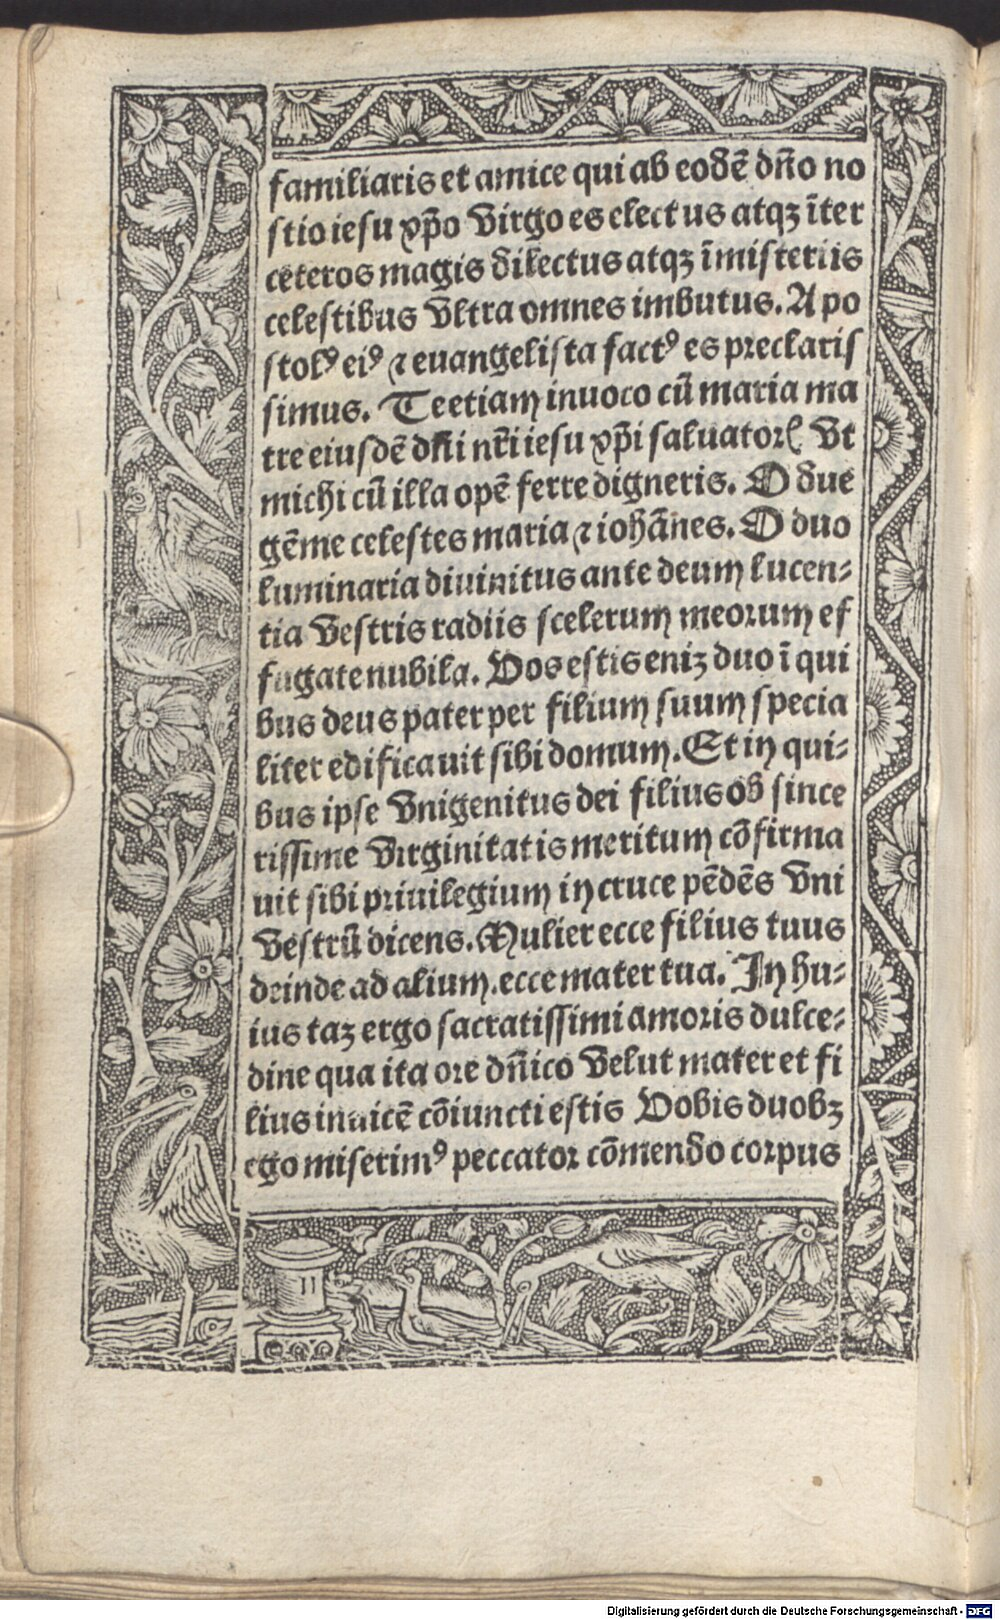 familiaris et amice qui ab eodē dn̄o no
stro iesu xp̄o virgo es electus atqꝫ īter
ceteros magis dilectus atqꝫ ī misteriis
celestibus vltra omnes imbutus. Apo
stolꝰ eiꝰ ⁊ euangelista factꝰ es preclaris
simus. Te etiam inuoco cū maria ma
tre eiusdē dn̄i nr̄i iesu xp̄i saluatorꝭ vt
michi cū illa opē ferre digneris. O due
gēme celestes maria ⁊ iohānes. O duo
luminaria diuinitus ante deum lucen⸗
tia vestris radiis scelerum meorum ef
fugate nubila. Vos estis eniꝫ duo ī qui
bus deus pater per filium suum specia
liter edificauit sibi domum. Et in qui⸗
bus ipse vnigenitus dei filius ob since
rissime virginitatis meritum cōfirma
uit sibi priuilegium in cruce pēdēs vni
vestrū dicens. Mulier ecce filius tuus
deinde ad alium. ecce mater tua. In hu⸗
ius taꝫ ergo sacratissimi amoris dulce⸗
dine qua ita ore dn̄ico velut mater et fi
lius inuicē cōiuncti estis Vobis duobꝫ
ego miserimꝰ peccator cōmendo corpus
Digitalisierung gefördert durch die Deutsche Forschungsgemeinschaft - DFG